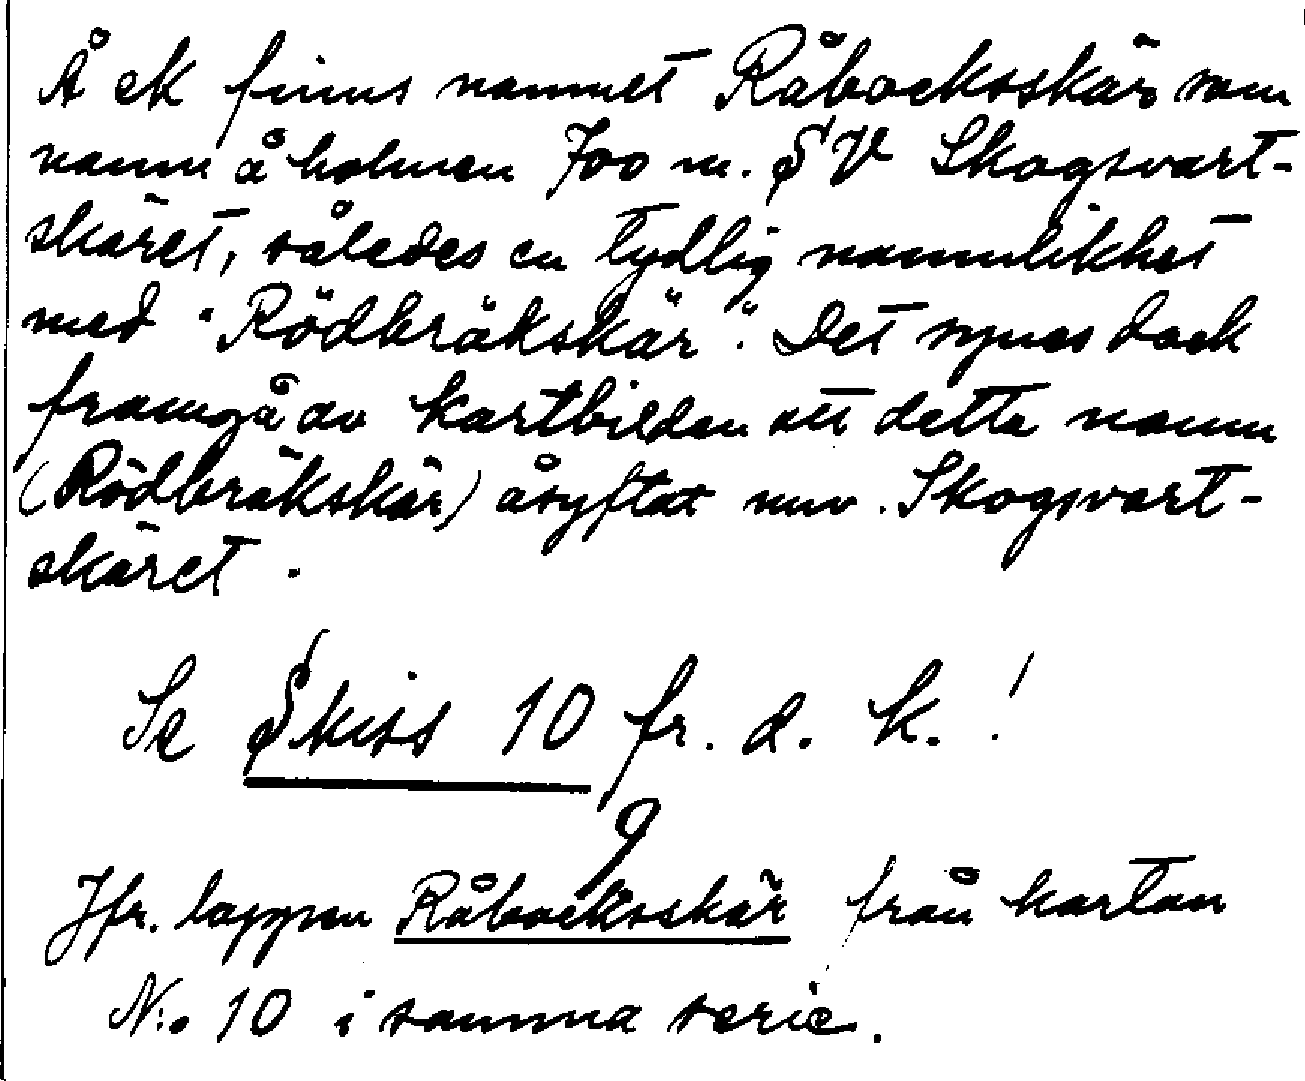 Å ek finns namnet Råbocksskär som
namn å holmen 700 m. SV Skogsvart-
skäret, således en tydlig namnlikhet
med "Rödbräkskär". Det synes dock
framgå av kartbilden att detta namn
(Rödbräkskär) åsyftat nuv. Skogsvart-
skäret.
Se Skiss 10 fr. d. k.!
9
Jfr. lappen Råbocksskär från kartan
N:o 10 i samma serie.